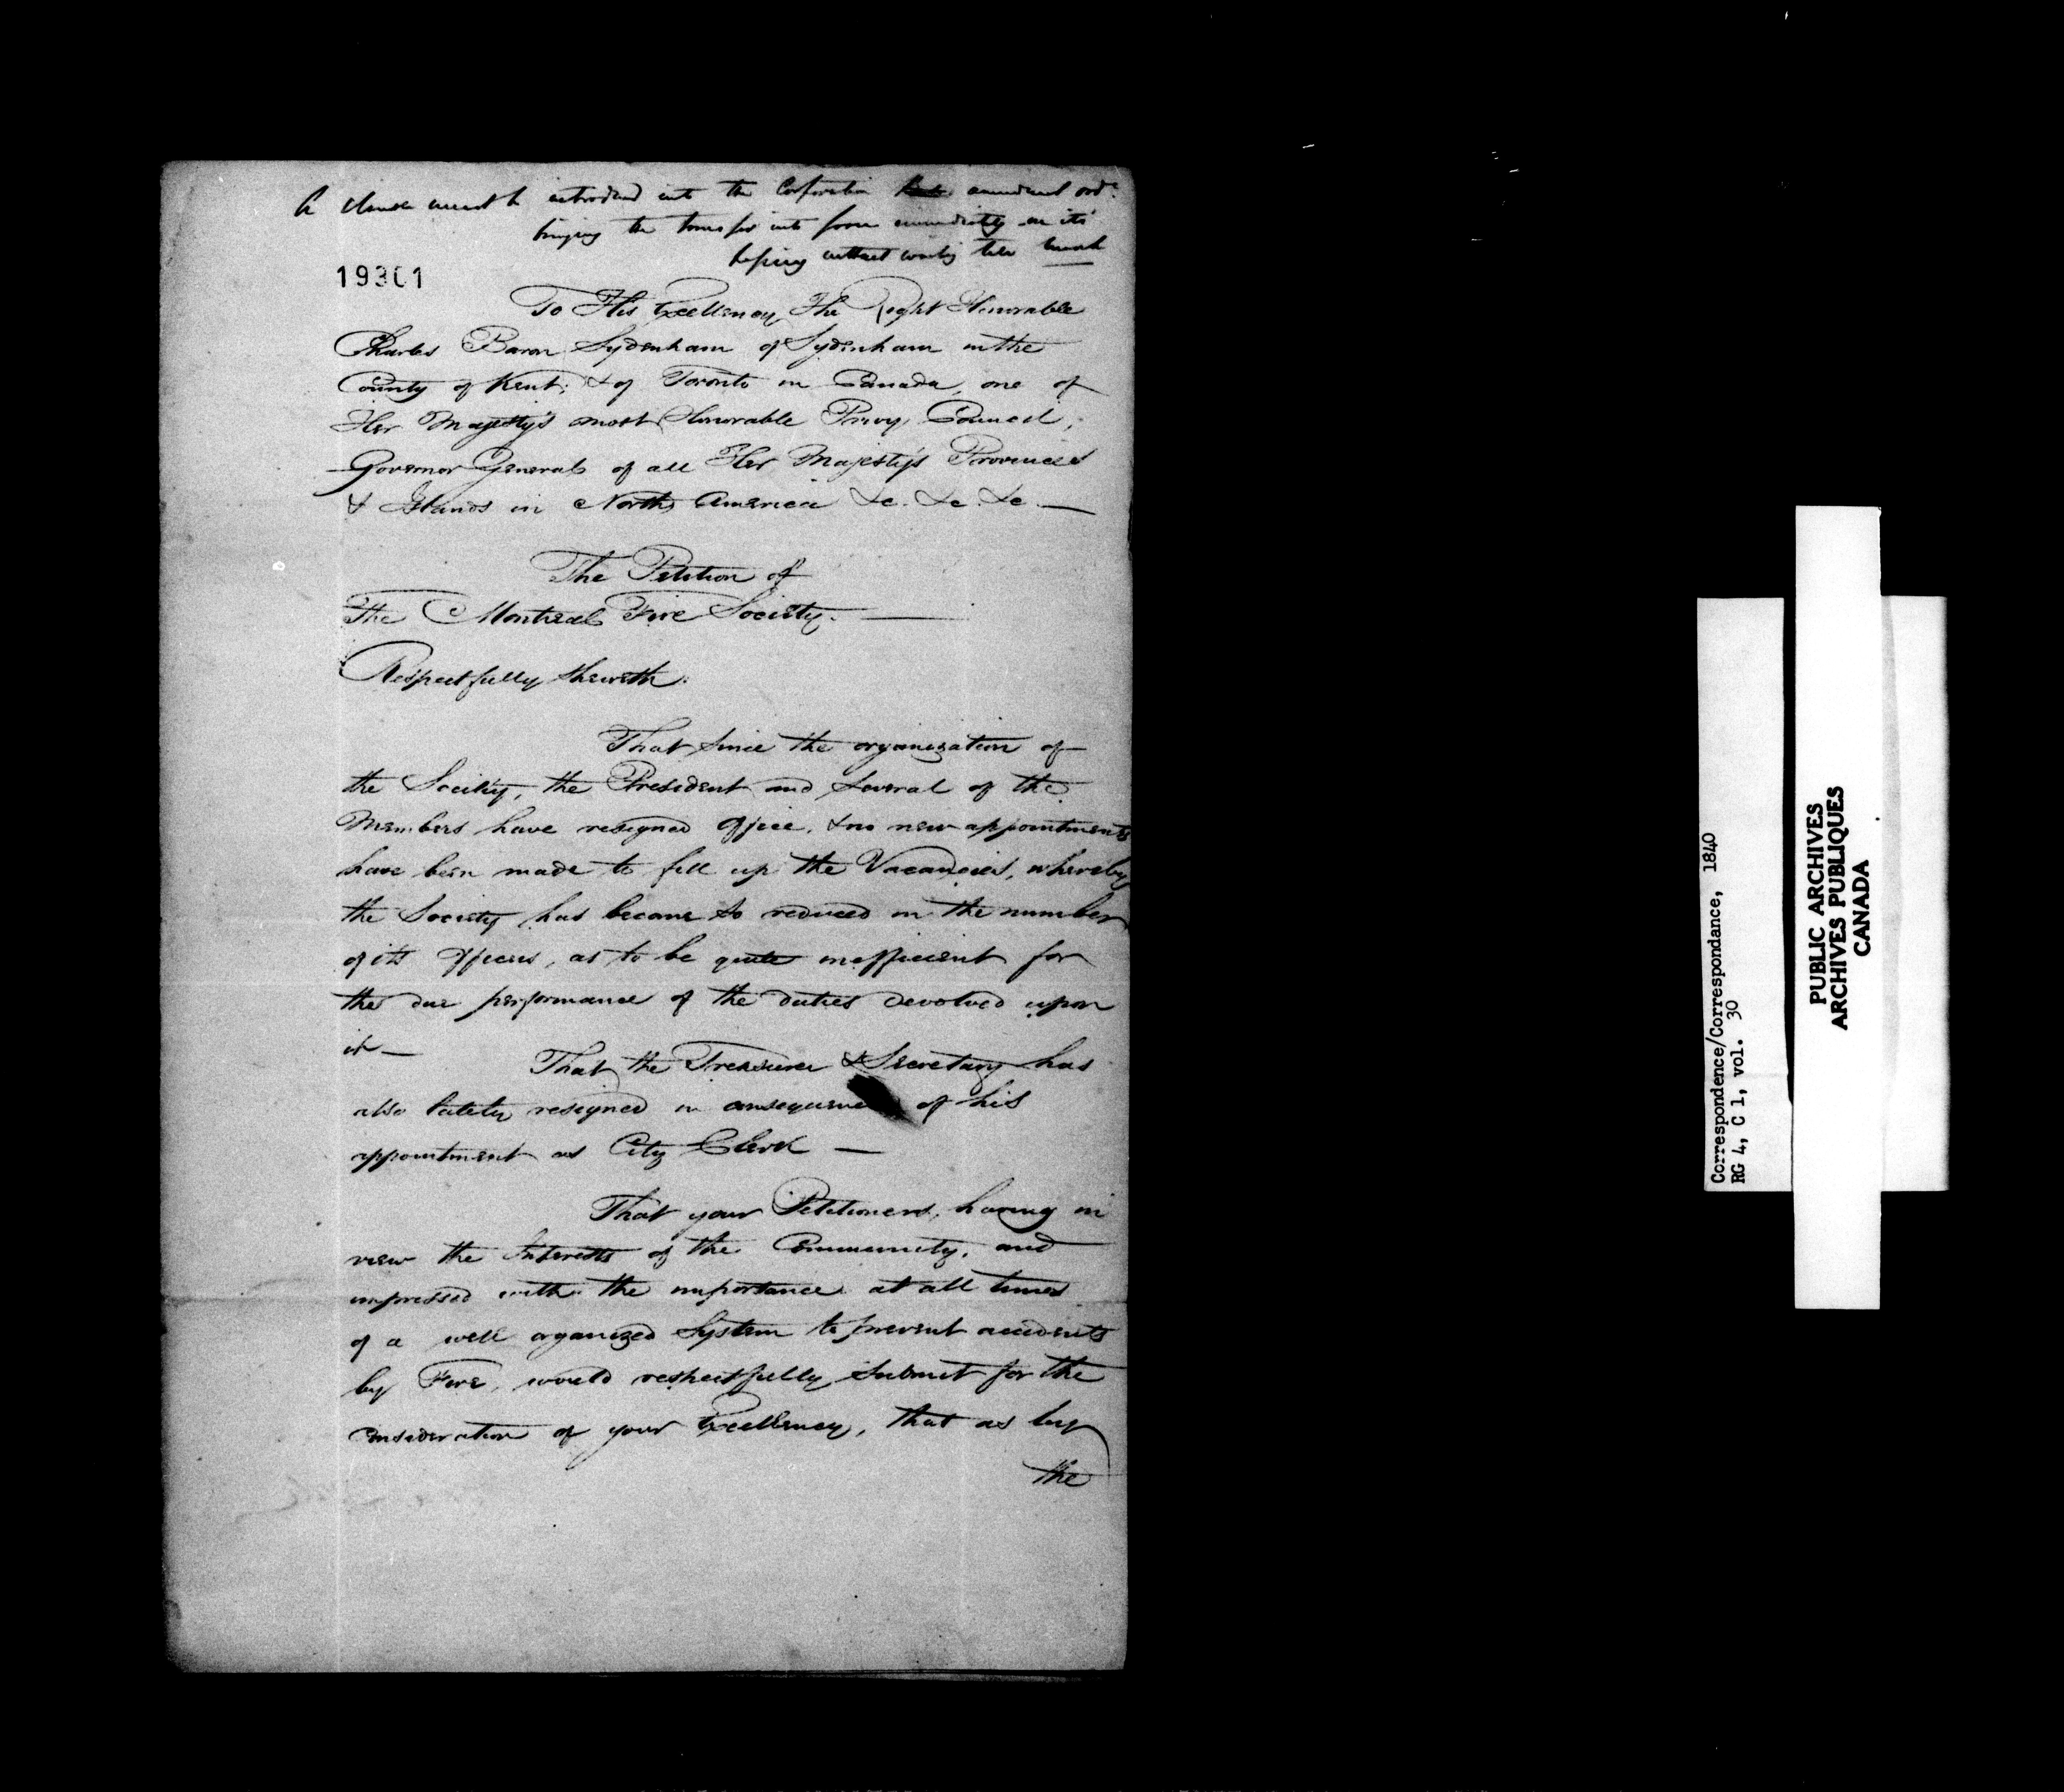 A clause must be introduced into the Corporation amendment ordce
bringing the transfer into force immediately on its
passing without waiting till
19301
To His Excellency The Right Honorable
Charles Baron Sydenham of Sydenham in the
County of Kent; & of Toronto in Canada, one of
Her Majesty's most Honorable Privy Council;
Governor General of all Her Majesty's Provinces
& Islands in North America &c. &c. &c. —
The Petition of
The Montreal Fire Society. —
Respectfully sheweth.
That since the organization of
the Society, the President and several of the
Members have resigned office, & no new appointments
have been made to fill up the Vacancies, whereby
the Society has become so reduced in the number
of its officers, as to be quite inefficient for
the due performance of the duties devolved upon
it —
That the Treasurer & Secretary has
also lately resigned in consequence of his
appointment as City Clerk —
That your Petitioners, having in
view the Interests of the Community, and
impressed with the importance at all times
of a well organized System to prevent accidents
by Fire, would respectfully submit for the
consideration of your Excellency, that as by
the
Correspondence/Correspondance, 1840
RG 4, C 1, vol. 30
PUBLIC ARCHIVES
ARCHIVES PUBLIQUES
CANADA